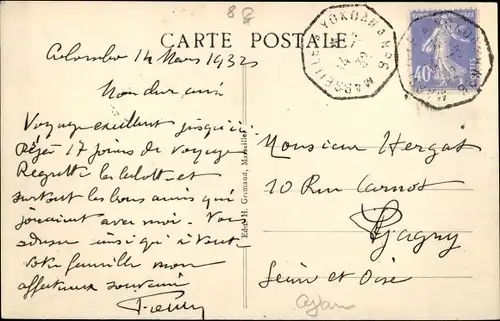 8
CARTE POSTALE
MARSEILLE A YOKOHAMA N° 6
40
Colombo 14 Mars 1932
Mon cher ami
Voyage excellent jusqu'ici
Déjà 17 jours de voyage
Regrette la belotte et
surtout les bons amis qui
jouaient avec moi. Vous
adresse ainsi qu'à toute
votre famille mon
affectueux souvenir
Edit. H. Grimaud, Marseille
Monsieur Hergat
10 Rue Carnot
Gagny
Seine et Oise